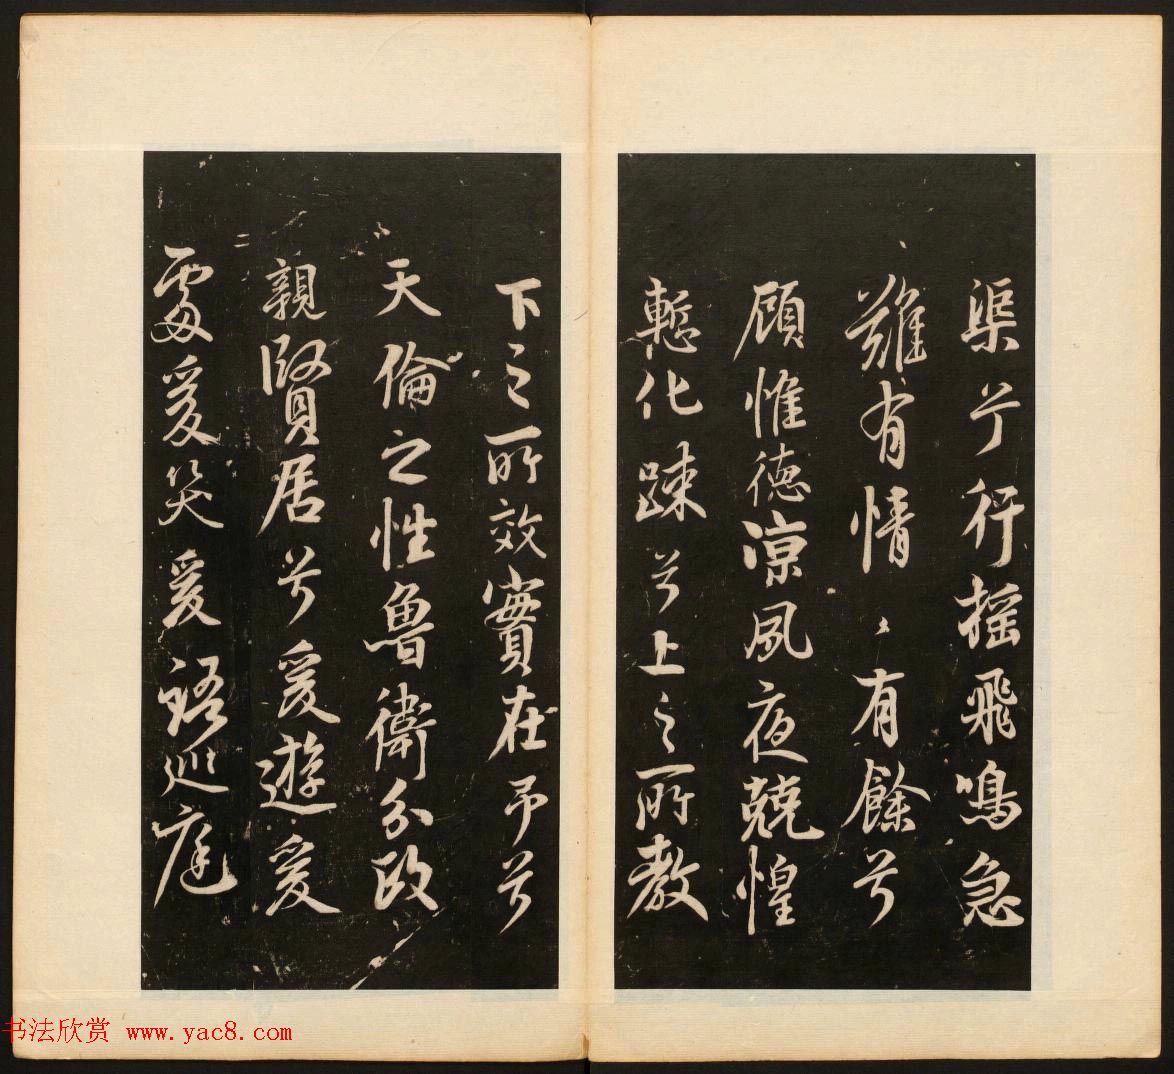 渠兮行摇飛鳴急
難有情〻有餘兮
顧惟德凉夙夜兢惶
慙化踈兮上之所教
下之所效實在予兮
天倫之性魯衛分政
親賢居兮爰遊爰
處爰笑爰語巡庭
书法欣赏 www.yac8.com